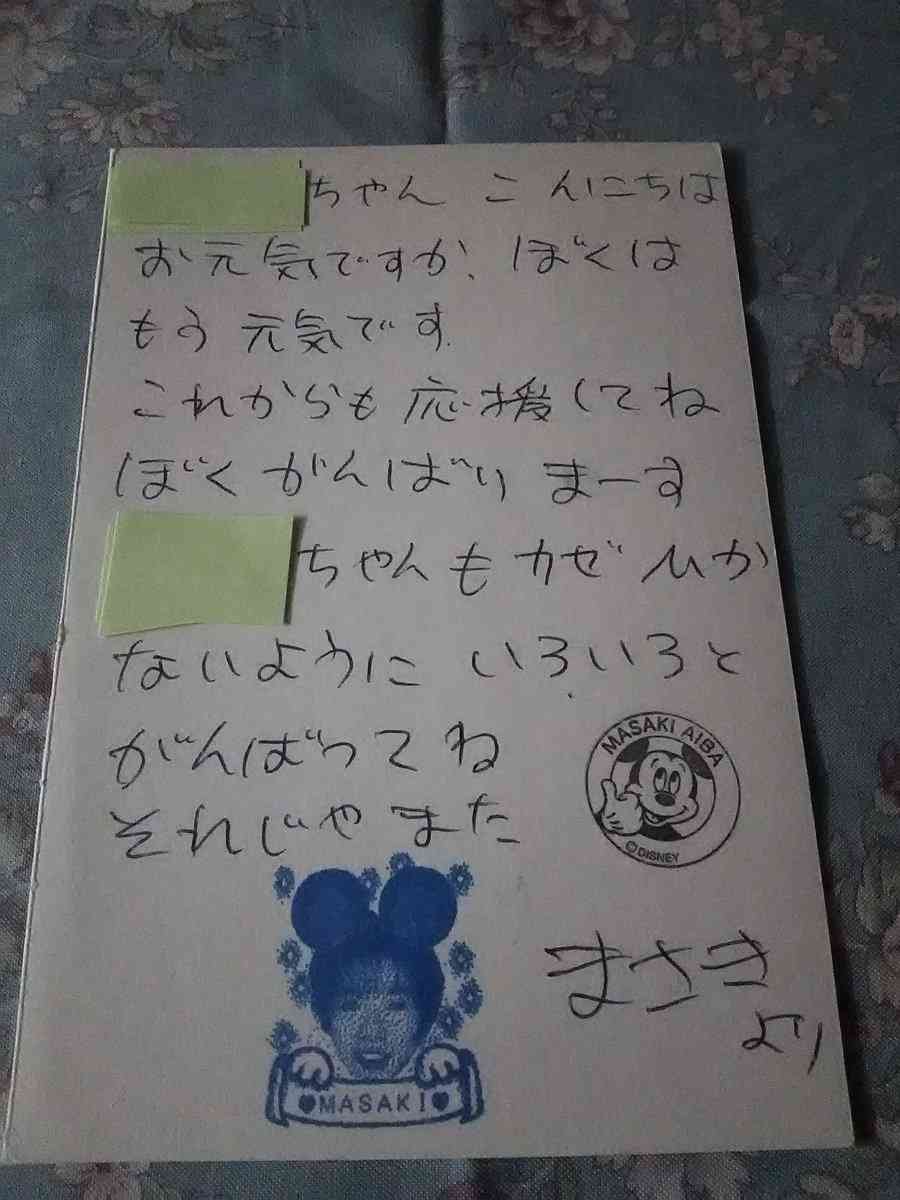 ちゃん こんにちは
お元気ですか、ぼくは
もう元気です
これからも応援してね
ぼくがんばりまーす
ちゃんもカゼひか
ないように いろいろと
がんばってね
それじゃまた
MASAKI AIBA
©DISNEY
まさき
より
♥MASAKI♥